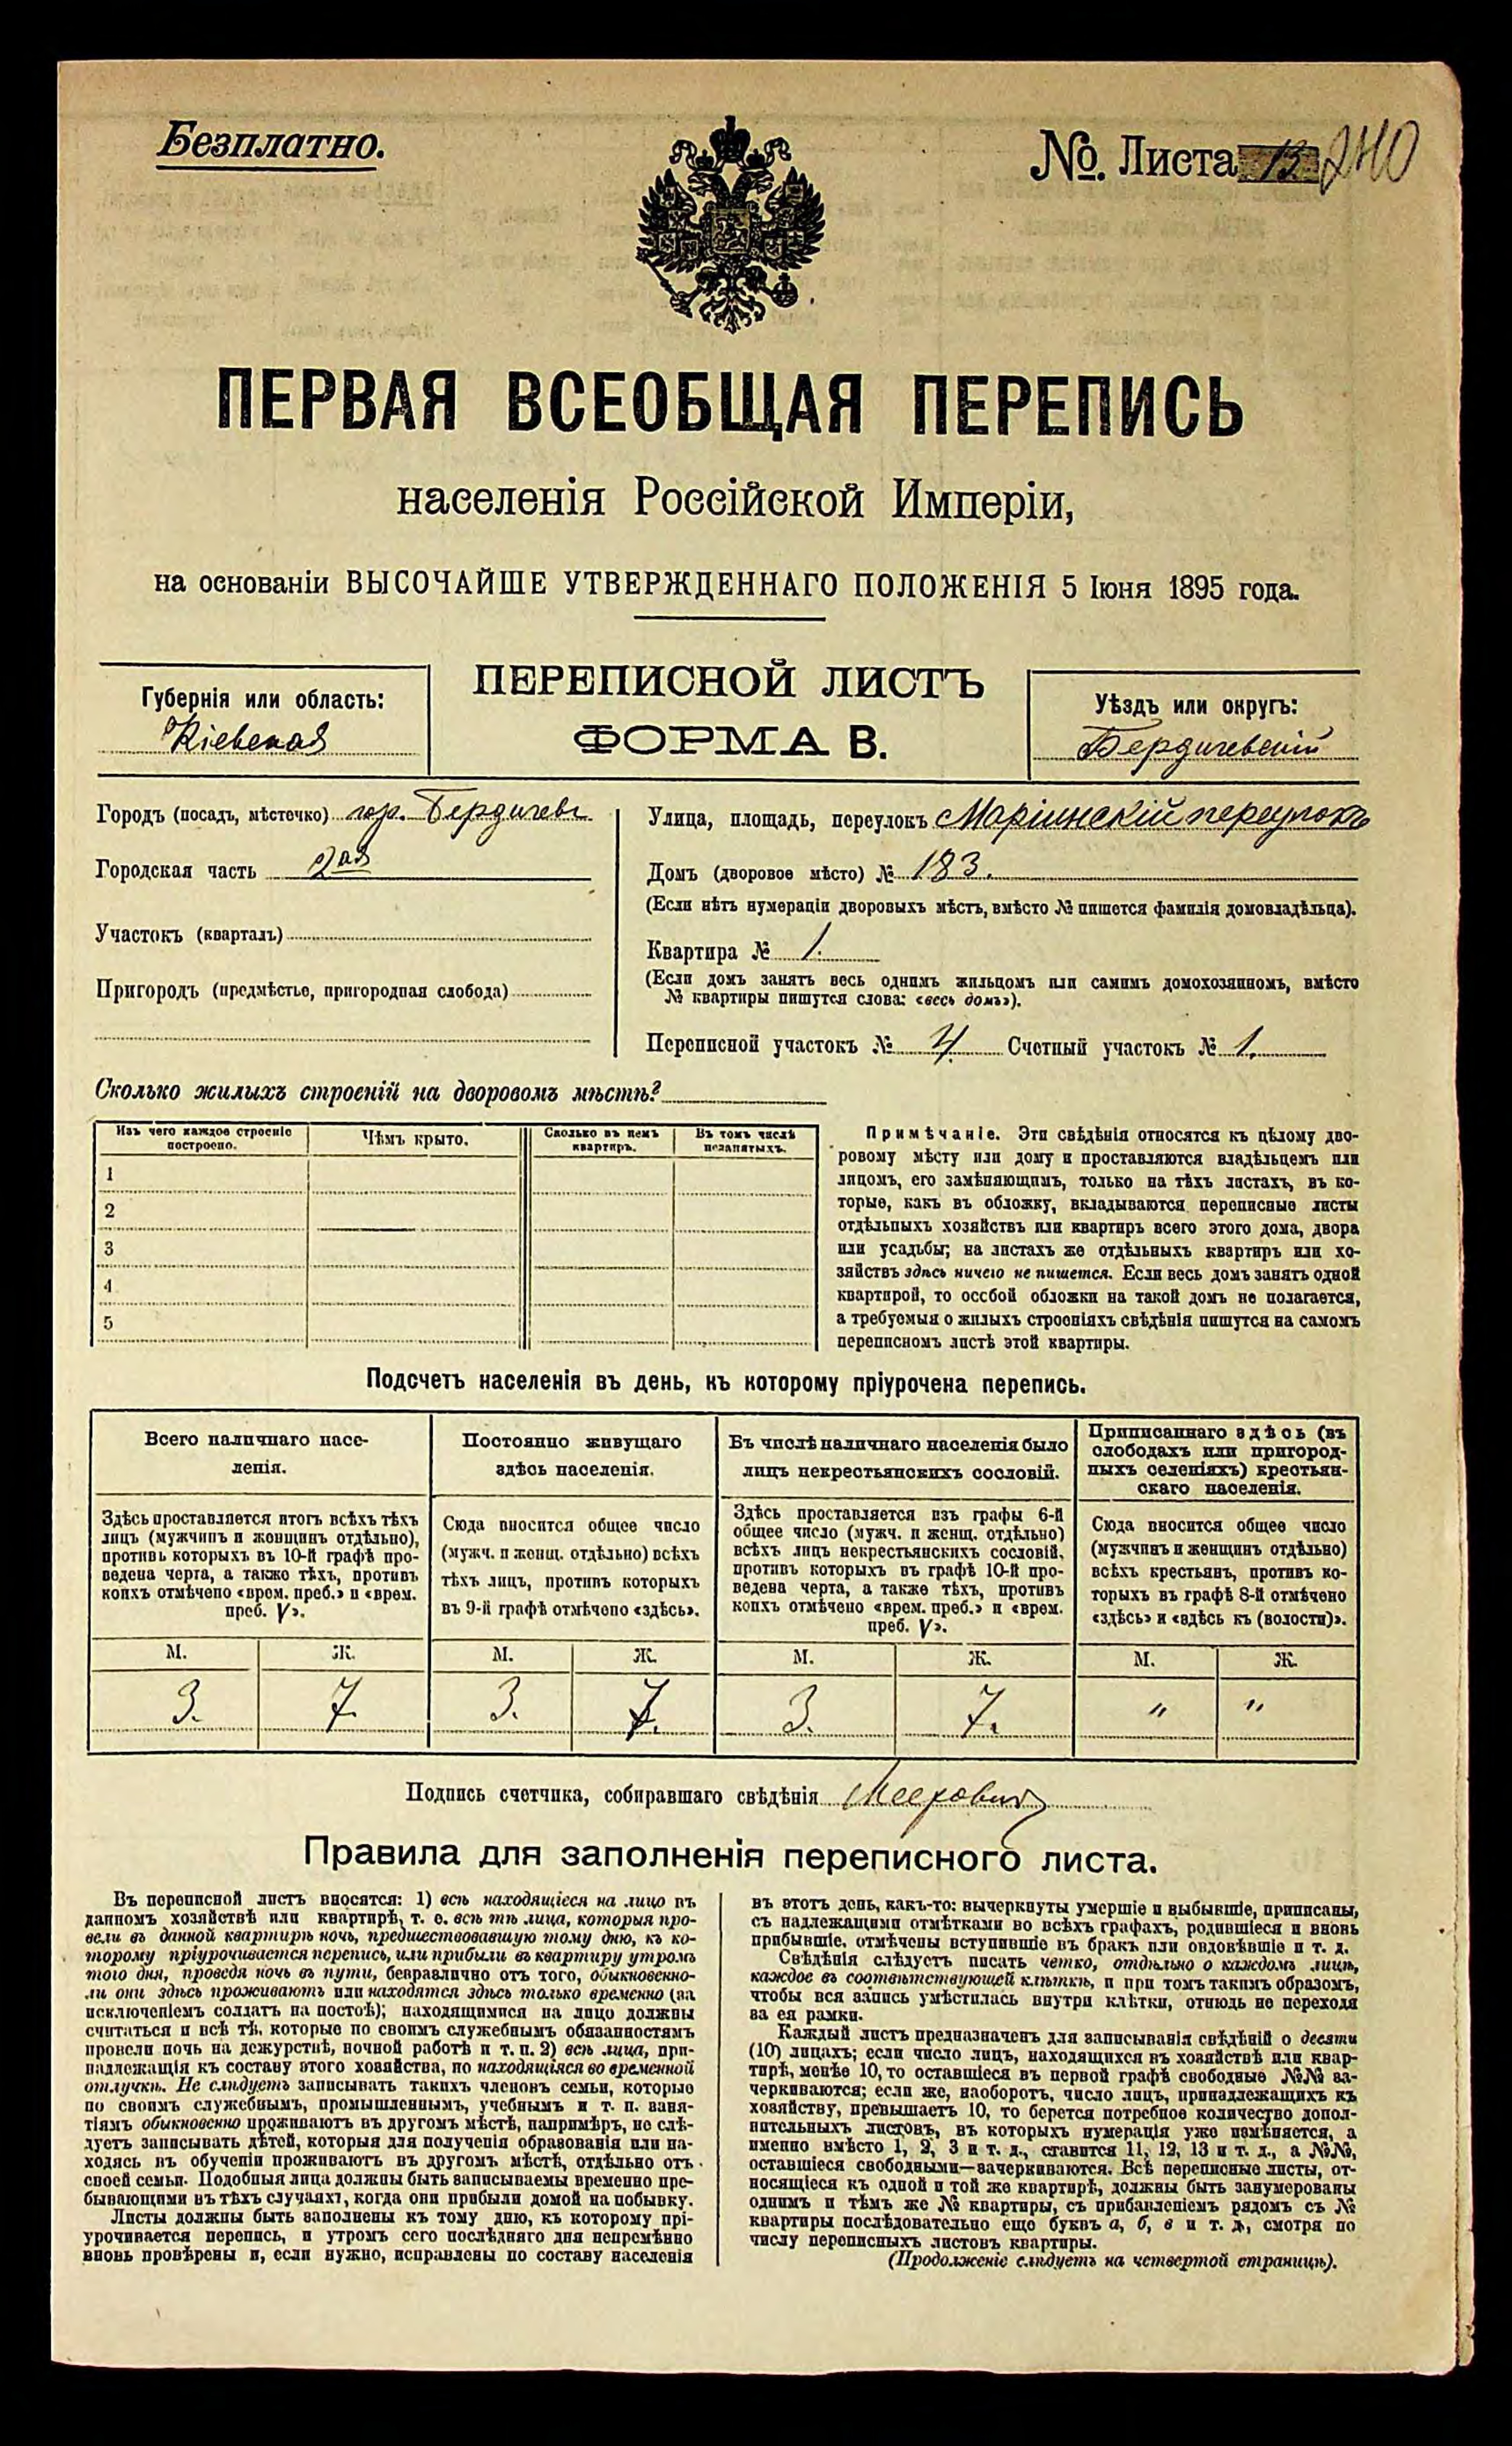 Безплатно.
№. Листа 13 240
ПЕРВАЯ ВСЕОБЩАЯ ПЕРЕПИСЬ
населенія Россійской Имперіи,
на основаніи ВЫСОЧАЙШЕ УТВЕРЖДЕННАГО ПОЛОЖЕНІЯ 5 Іюня 1895 года.
Губернія или область:
Кіевская
ПЕРЕПИСНОЙ ЛИСТЪ
ФОРМА В.
Уѣздъ или округъ:
Бердичевскій
Городъ (посадъ, мѣстечко) гор. Бердичевъ
Городская часть 2ая
Участокъ (кварталъ)
Пригородъ (предмѣстье, пригородная слобода)
Улица, площадь, переулокъ Маріинскій переулокъ
Домъ (дворовое мѣсто) № 183.
(Если нѣтъ нумераціи дворовыхъ мѣстъ, вмѣсто № пишется фамилія домовладѣльца).
Квартира № 1.
(Если домъ занятъ весь однимъ жильцомъ или самимъ домохозяиномъ, вмѣсто
№ квартиры пишутся слова: «весь домъ»).
Переписной участокъ № 4. Счетный участокъ № 1.
Сколько жилыхъ строеній на дворовомъ мѣстѣ?
Изъ чего каждое строеніе
построено.
Чѣмъ крыто.
Сколько въ немъ
квартиръ.
Въ томъ числѣ
незанятыхъ.
1
2
3
4
5
Примѣчаніе. Эти свѣдѣнія относятся къ цѣлому дво-
ровому мѣсту или дому и проставляются владѣльцемъ или
лицомъ, его замѣняющимъ, только на тѣхъ листахъ, въ ко-
торые, какъ въ обложку, вкладываются переписные листы
отдѣльныхъ хозяйствъ или квартиръ всего этого дома, двора
или усадьбы; на листахъ же отдѣльныхъ квартиръ или хо-
зяйствъ здѣсь ничего не пишется. Если весь домъ занятъ одной
квартирой, то особой обложки на такой домъ не полагается,
а требуемыя о жилыхъ строеніяхъ свѣдѣнія пишутся на самомъ
переписномъ листѣ этой квартиры.
Подсчетъ населенія въ день, къ которому пріурочена перепись.
Всего наличнаго насе-
ленія.
Здѣсь проставляется итогъ всѣхъ тѣхъ
лицъ (мужчинъ и женщинъ отдѣльно),
противъ которыхъ въ 10-й графѣ про-
ведена черта, а также тѣхъ, противъ
коихъ отмѣчено «врем. преб.» и «врем.
преб. V».
Постоянно живущаго
здѣсь населенія.
Сюда вносится общее число
(мужч. и женщ. отдѣльно) всѣхъ
тѣхъ лицъ, противъ которыхъ
въ 9-й графѣ отмѣчено «здѣсь».
Въ числѣ наличнаго населенія было
лицъ некрестьянскихъ сословій.
Здѣсь проставляется изъ графы 6-й
общее число (мужч. и женщ. отдѣльно)
всѣхъ лицъ некрестьянскихъ сословій,
противъ которыхъ въ графѣ 10-й про-
ведена черта, а также тѣхъ, противъ
коихъ отмѣчено «врем. преб.» и «врем.
преб. V».
Приписаннаго здѣсь (въ
слободахъ или пригород-
ныхъ селеніяхъ) крестьян-
скаго населенія.
Сюда вносится общее число
(мужчинъ и женщинъ отдѣльно)
всѣхъ крестьянъ, противъ ко-
торыхъ въ графѣ 8-й отмѣчено
«здѣсь» и «здѣсь къ (волости)».
М. Ж. М. Ж. М. Ж. М. Ж.
3. 7. 3. 7. 3. 7. " "
Подпись счетчика, собиравшаго свѣдѣнія Меерович
Правила для заполненія переписного листа.
Въ переписной листъ вносятся: 1) всѣ находящіеся на лицо въ
данномъ хозяйствѣ или квартирѣ, т. е. всѣ тѣ лица, которыя про-
вели въ данной квартирѣ ночь, предшествовавшую тому дню, къ ко-
торому пріурочивается перепись, или прибыли въ квартиру утромъ
того дня, проведя ночь въ пути, безразлично отъ того, обыкновенно-
ли они здѣсь проживаютъ или находятся здѣсь только временно (за
исключеніемъ солдатъ на постоѣ); находящимися на лицо должны
считаться и всѣ тѣ, которые по своимъ служебнымъ обязанностямъ
провели ночь на дежурствѣ, ночной работѣ и т. п. 2) всѣ лица, при-
надлежащія къ составу этого хозяйства, но находящіяся во временной
отлучкѣ. Не слѣдуетъ записывать такихъ членовъ семьи, которые
по своимъ служебнымъ, промышленнымъ, учебнымъ и т. п. заня-
тіямъ обыкновенно проживаютъ въ другомъ мѣстѣ, напримѣръ, не слѣ-
дуетъ записывать дѣтей, которыя для полученія образованія или на-
ходясь въ обученіи проживаютъ въ другомъ мѣстѣ, отдѣльно отъ
своей семьи. Подобныя лица должны быть записываемы временно пре-
бывающими въ тѣхъ случаяхъ, когда они прибыли домой на побывку.
Листы должны быть заполнены къ тому дню, къ которому прі-
урочивается перепись, и утромъ сего послѣдняго дня непремѣнно
вновь провѣрены и, если нужно, исправлены по составу населенія
въ этотъ день, какъ-то: вычеркнуты умершіе и выбывшіе, приписаны,
съ надлежащими отмѣтками во всѣхъ графахъ, родившіеся и вновь
прибывшіе, отмѣчены вступившіе въ бракъ или овдовѣвшіе и т. д.
Свѣдѣнія слѣдуетъ писать четко, отдѣльно о каждомъ лицѣ,
каждое въ соотвѣтствующей клѣткѣ, и при томъ такимъ образомъ,
чтобы вся запись умѣстилась внутри клѣтки, отнюдь не переходя
за ея рамки.
Каждый листъ предназначенъ для записыванія свѣдѣній о десяти
(10) лицахъ; если число лицъ, находящихся въ хозяйствѣ или квар-
тирѣ, менѣе 10, то оставшіеся въ первой графѣ свободные №№ за-
черкиваются; если же, наоборотъ, число лицъ, принадлежащихъ къ
хозяйству, превышаетъ 10, то берется потребное количество допол-
нительныхъ листовъ, въ которыхъ нумерація уже измѣняется, а
именно вмѣсто 1, 2, 3 и т. д., ставится 11, 12, 13 и т. д., а №№,
оставшіеся свободными—зачеркиваются. Всѣ переписные листы, от-
носящіеся къ одной и той же квартирѣ, должны быть занумерованы
однимъ и тѣмъ же № квартиры, съ прибавленіемъ рядомъ съ №
квартиры послѣдовательно еще буквъ а, б, в и т. д., смотря по
числу переписныхъ листовъ квартиры.
(Продолженіе слѣдуетъ на четвертой страницѣ).